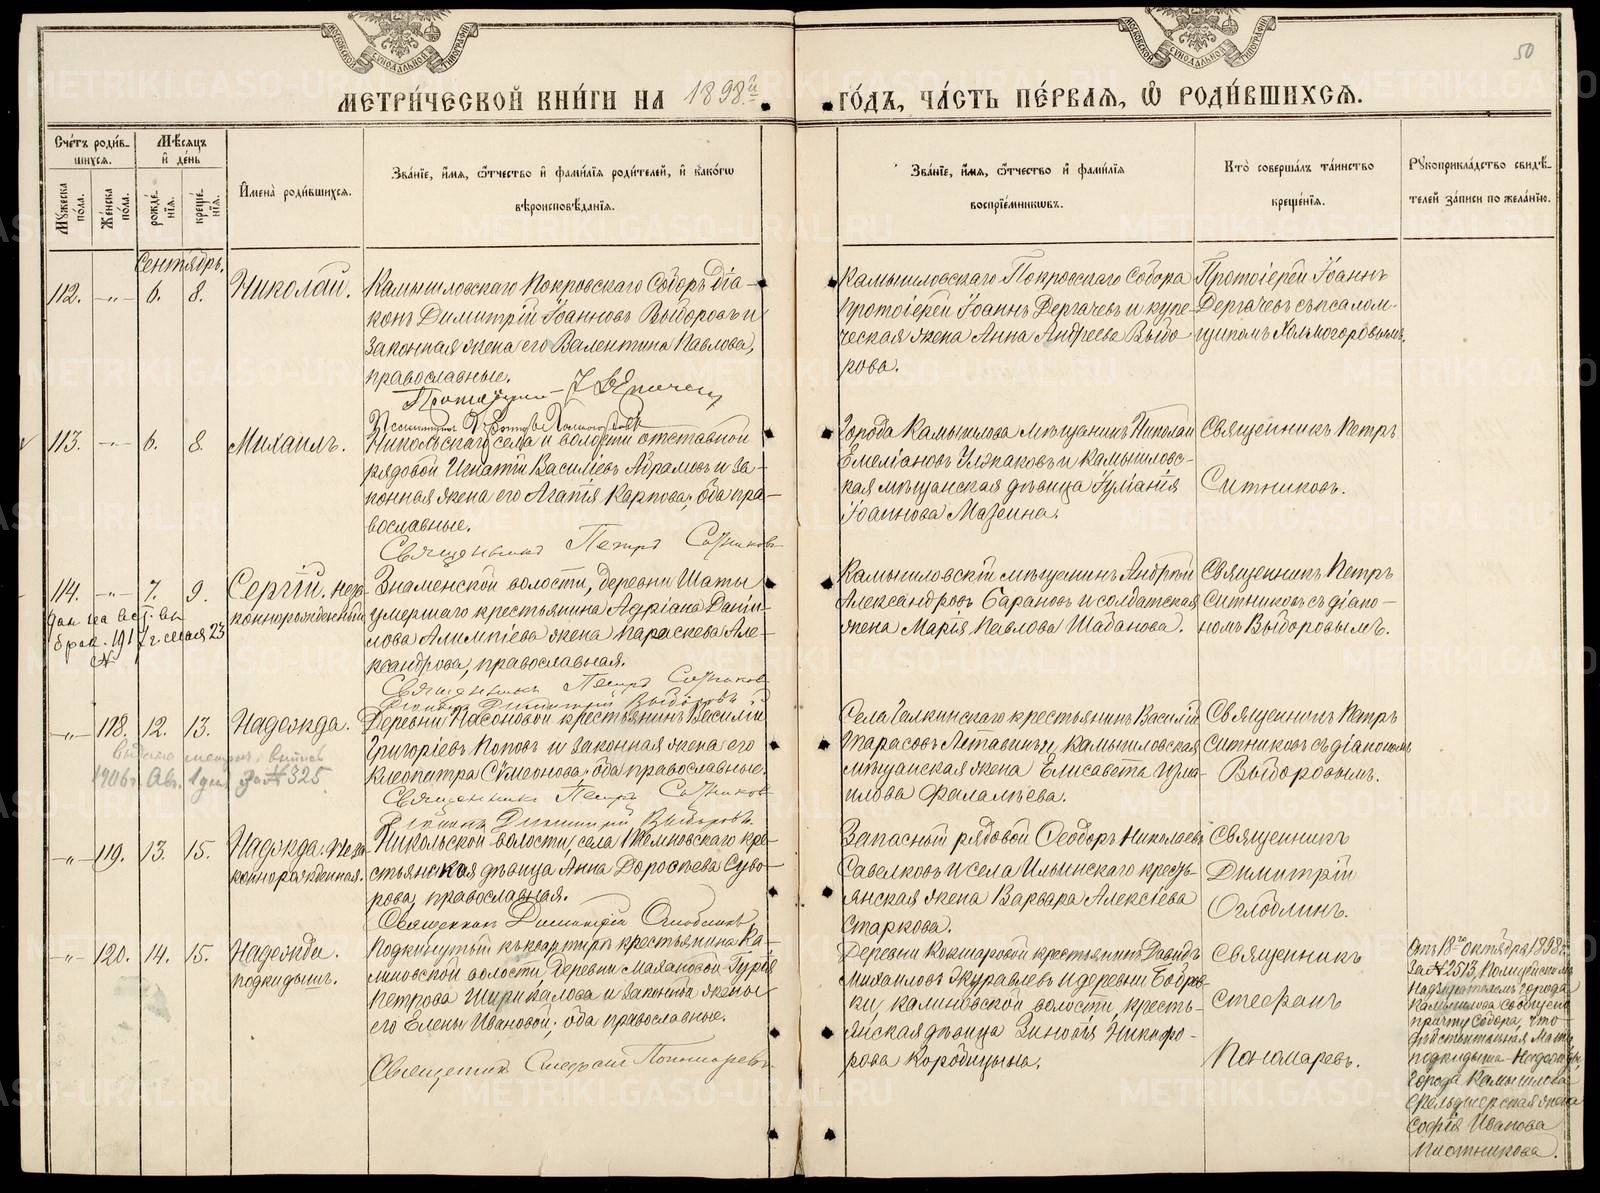 50
МОСКОВСКОЙ СѴНОДАЛЬНОЙ ТИПОГРАФІИ
МОСКОВСКОЙ СѴНОДАЛЬНОЙ ТИПОГРАФІИ
МЕТРИ́ЧЕСКОЙ КНИ́ГИ НА 1898й
ГО́ДЪ, ЧА́СТЬ ПЕ́РВАЯ, Ѽ РОДИ́ВШИХСЯ.
Сче́тъ роди́в-
шихся.
Мѣ́сяцъ
и҆ де́нь
Му́жеска
по́ла.
Же́нска
по́ла.
рожде́-
нїя.
креще́-
нїя.
И҆мена̀ роди́вшихся.
Зва́нїе, и҆́мя, ѻ҆́тчество и҆ фами́лїя роди́телей, и҆ како́гѡ
вѣроисповѣ́данїя.
Зва́нїе, и҆́мя, ѻ҆́тчество и҆ фами́лїя
воспрїе́мникѡвъ.
Кто̀ соверша́лъ та́инство
креще́нїя.
Рукоприкла́дство свидѣ́-
телей за́писи по жела́нїю.
Сентябрь.
112. —"— 6. 8. Николай.
Камышловскаго Покровскаго Собора діа-
конъ Димитрій Іоанновъ Выборовъ и
законная жена его Валентина Павлова,
православные.
Камышловскаго Покровскаго Собора
Протоіерей Іоаннъ Дергачевъ и купе-
ческая жена Анна Андреева Выбо
рова.
Протоіерей Іоаннъ
Дергачевъ съ псалом-
щикомъ Холмогоровымъ.
113. —"— 6. 8. Михаилъ.
Никольскаго села и волости отставной
рядовой Игнатій Василіевъ Абрамовъ и за-
конная жена его Агапія Карпова, оба пра-
вославные.
Священникъ Петръ Ситниковъ
Города Камышлова мѣщанинъ Николай
Емеліановъ Ужаковъ и Камышловс-
кая мѣщанская дѣвица Іуліанія
Іоаннова Мазеина.
Священникъ Петръ
Ситниковъ.
114. —"— 7. 9. Сергій. неза
коннорожденный
Знаменской волости, деревни Шаты
умершаго крестьянина Адріана Даніи-
лова Алимпіева жена Параскева Але-
ксандрова, православная.
Священникъ Петръ Ситниковъ
Діаконъ Димитрій Выборовъ
Камышловскій мѣщанинъ Андрей
Александровъ Барановъ и солдатская
жена Марія Павлова Шабанова.
Священникъ Петръ
Ситниковъ съ діако-
номъ Выборовымъ.
—"— 118. 12. 13. Надежда.
1906г. Авг. 1 дня за № 325
Деревни Насоновой крестьянинъ Василій
Григоріевъ Поповъ и законная жена его
Клеопатра Сѵмеонова, оба православные.
Священникъ Петръ Ситниковъ
Діаконъ Димитрій Выборовъ.
Села Галкинскаго крестьянинъ Василій
Тарасовъ Летавинъ и Камышловская
мѣщанская жена Елисавета Изма-
илова Фалалѣева.
Священникъ Петръ
Ситниковъ съ діакономъ
Выборовымъ.
—"— 119. 13. 15. Надежда. Неза
коннорожденная.
Никольской волости, села Темновскаго кре-
стьянская дѣвица Анна Дороѳеева Суво-
рова, православная.
Священникъ Димитрій Оглоблинъ
Запасный рядовой Ѳеодоръ Николаевъ
Савелковъ и села Ильинскаго кресть-
янская жена Варвара Алексіева
Старкова.
Священникъ
Димитрій
Оглоблинъ.
—"— 120. 14. 15. Надежда.
подкидышъ.
Подкинутый къ квартирѣ крестьянина Ка-
линовской волости, деревни Малахановой Гурія
Петрова Ширикалова и законной жены
его Елены Ивановой; оба православные.
Священникъ Стефанъ Пономаревъ.
Деревни Кокшаровой крестьянинъ Давидъ
Михаиловъ Журавлевъ и деревни Бобров-
ки, Калиновской волости, кресть-
янская дѣвица Зиновія Никифо-
рова Коробицына.
Священникъ
Стефанъ
Пономаревъ.
Отъ 18го октября 1898г.
за № 2513, Полицейскимъ
Надзирателемъ города
Камышлова сообщено
причту Собора, что
дѣйствительная мать
подкидыша Надежды,
города Камышлова
фельдшерская жена
Софія Иванова
Плотникова.